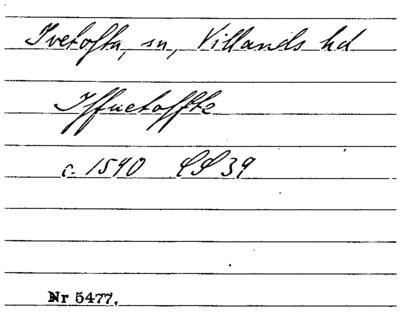 Ivetofta, sn, Villands hd
Iffuetoffte
c. 1590 LS 39
Nr 5477.